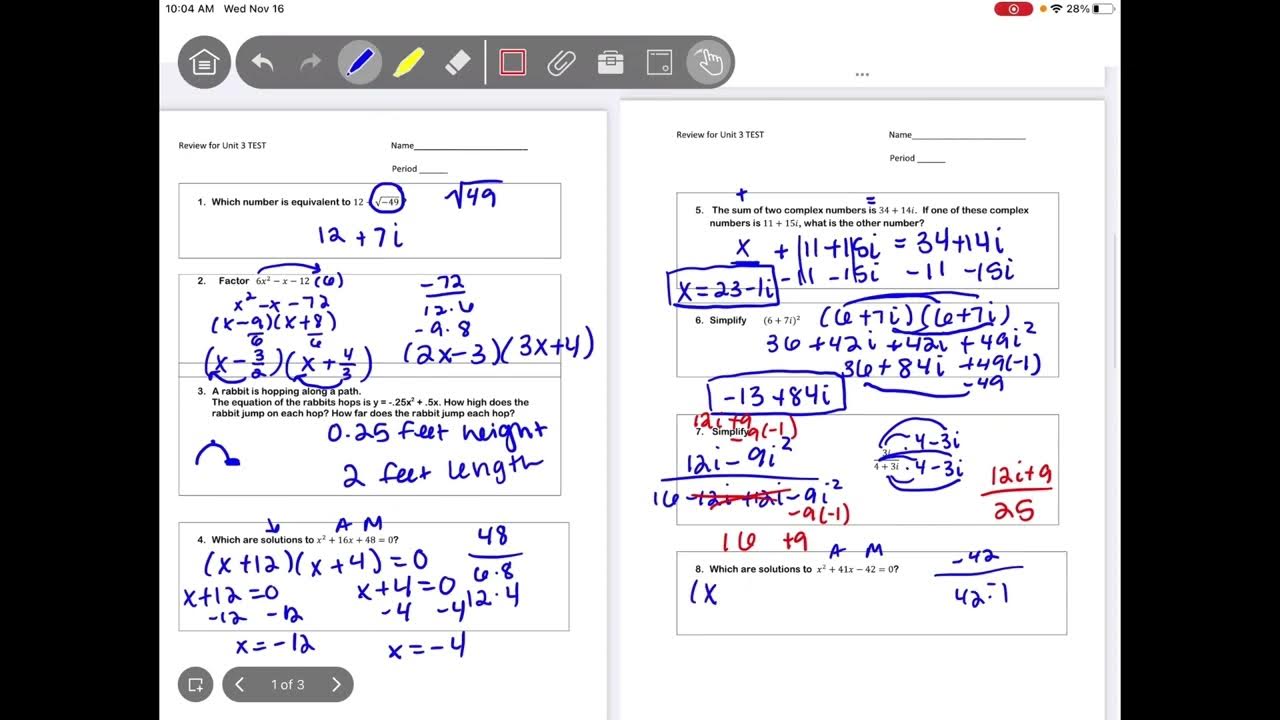 10:04 AM Wed Nov 16
28%
Review for Unit 3 TEST
Name
Period
1. Which number is equivalent to 12 + √−49
√49
12 + 7i
2. Factor 6x² − x − 12 (6)
x² − x − 72
(x−9)(x+8)
6 6
(x − 3/2)(x + 4/3)
−72
12·6
−9·8
(2x−3)(3x+4)
3. A rabbit is hopping along a path.
The equation of the rabbits hops is y = -.25x² + .5x. How high does the
rabbit jump on each hop? How far does the rabbit jump each hop?
0.25 feet height
2 feet length
A M
4. Which are solutions to x² + 16x + 48 = 0?
(x+12)(x+4) = 0
x+12=0 x+4=0
−12 −12 −4 −4
x=−12 x=−4
48
6·8
12·4
1 of 3
Review for Unit 3 TEST
Name
Period
+ =
5. The sum of two complex numbers is 34 + 14i. If one of these complex
numbers is 11 + 15i, what is the other number?
x + 11+15i = 34+14i
−11 −15i −11 −15i
x = 23−1i
6. Simplify (6 + 7i)² (6+7i)(6+7i)
36 + 42i + 42i + 49i²
36 + 84i + 49(−1)
−49
−13 + 84i
12i+9
7. Simplify −9(−1)
12i − 9i²
16 −12i +12i − 9i²
−9(−1)
16 +9
3i · 4−3i
4 + 3i · 4−3i
12i+9
25
A M
8. Which are solutions to x² + 41x − 42 = 0?
(x
−42
42·−1